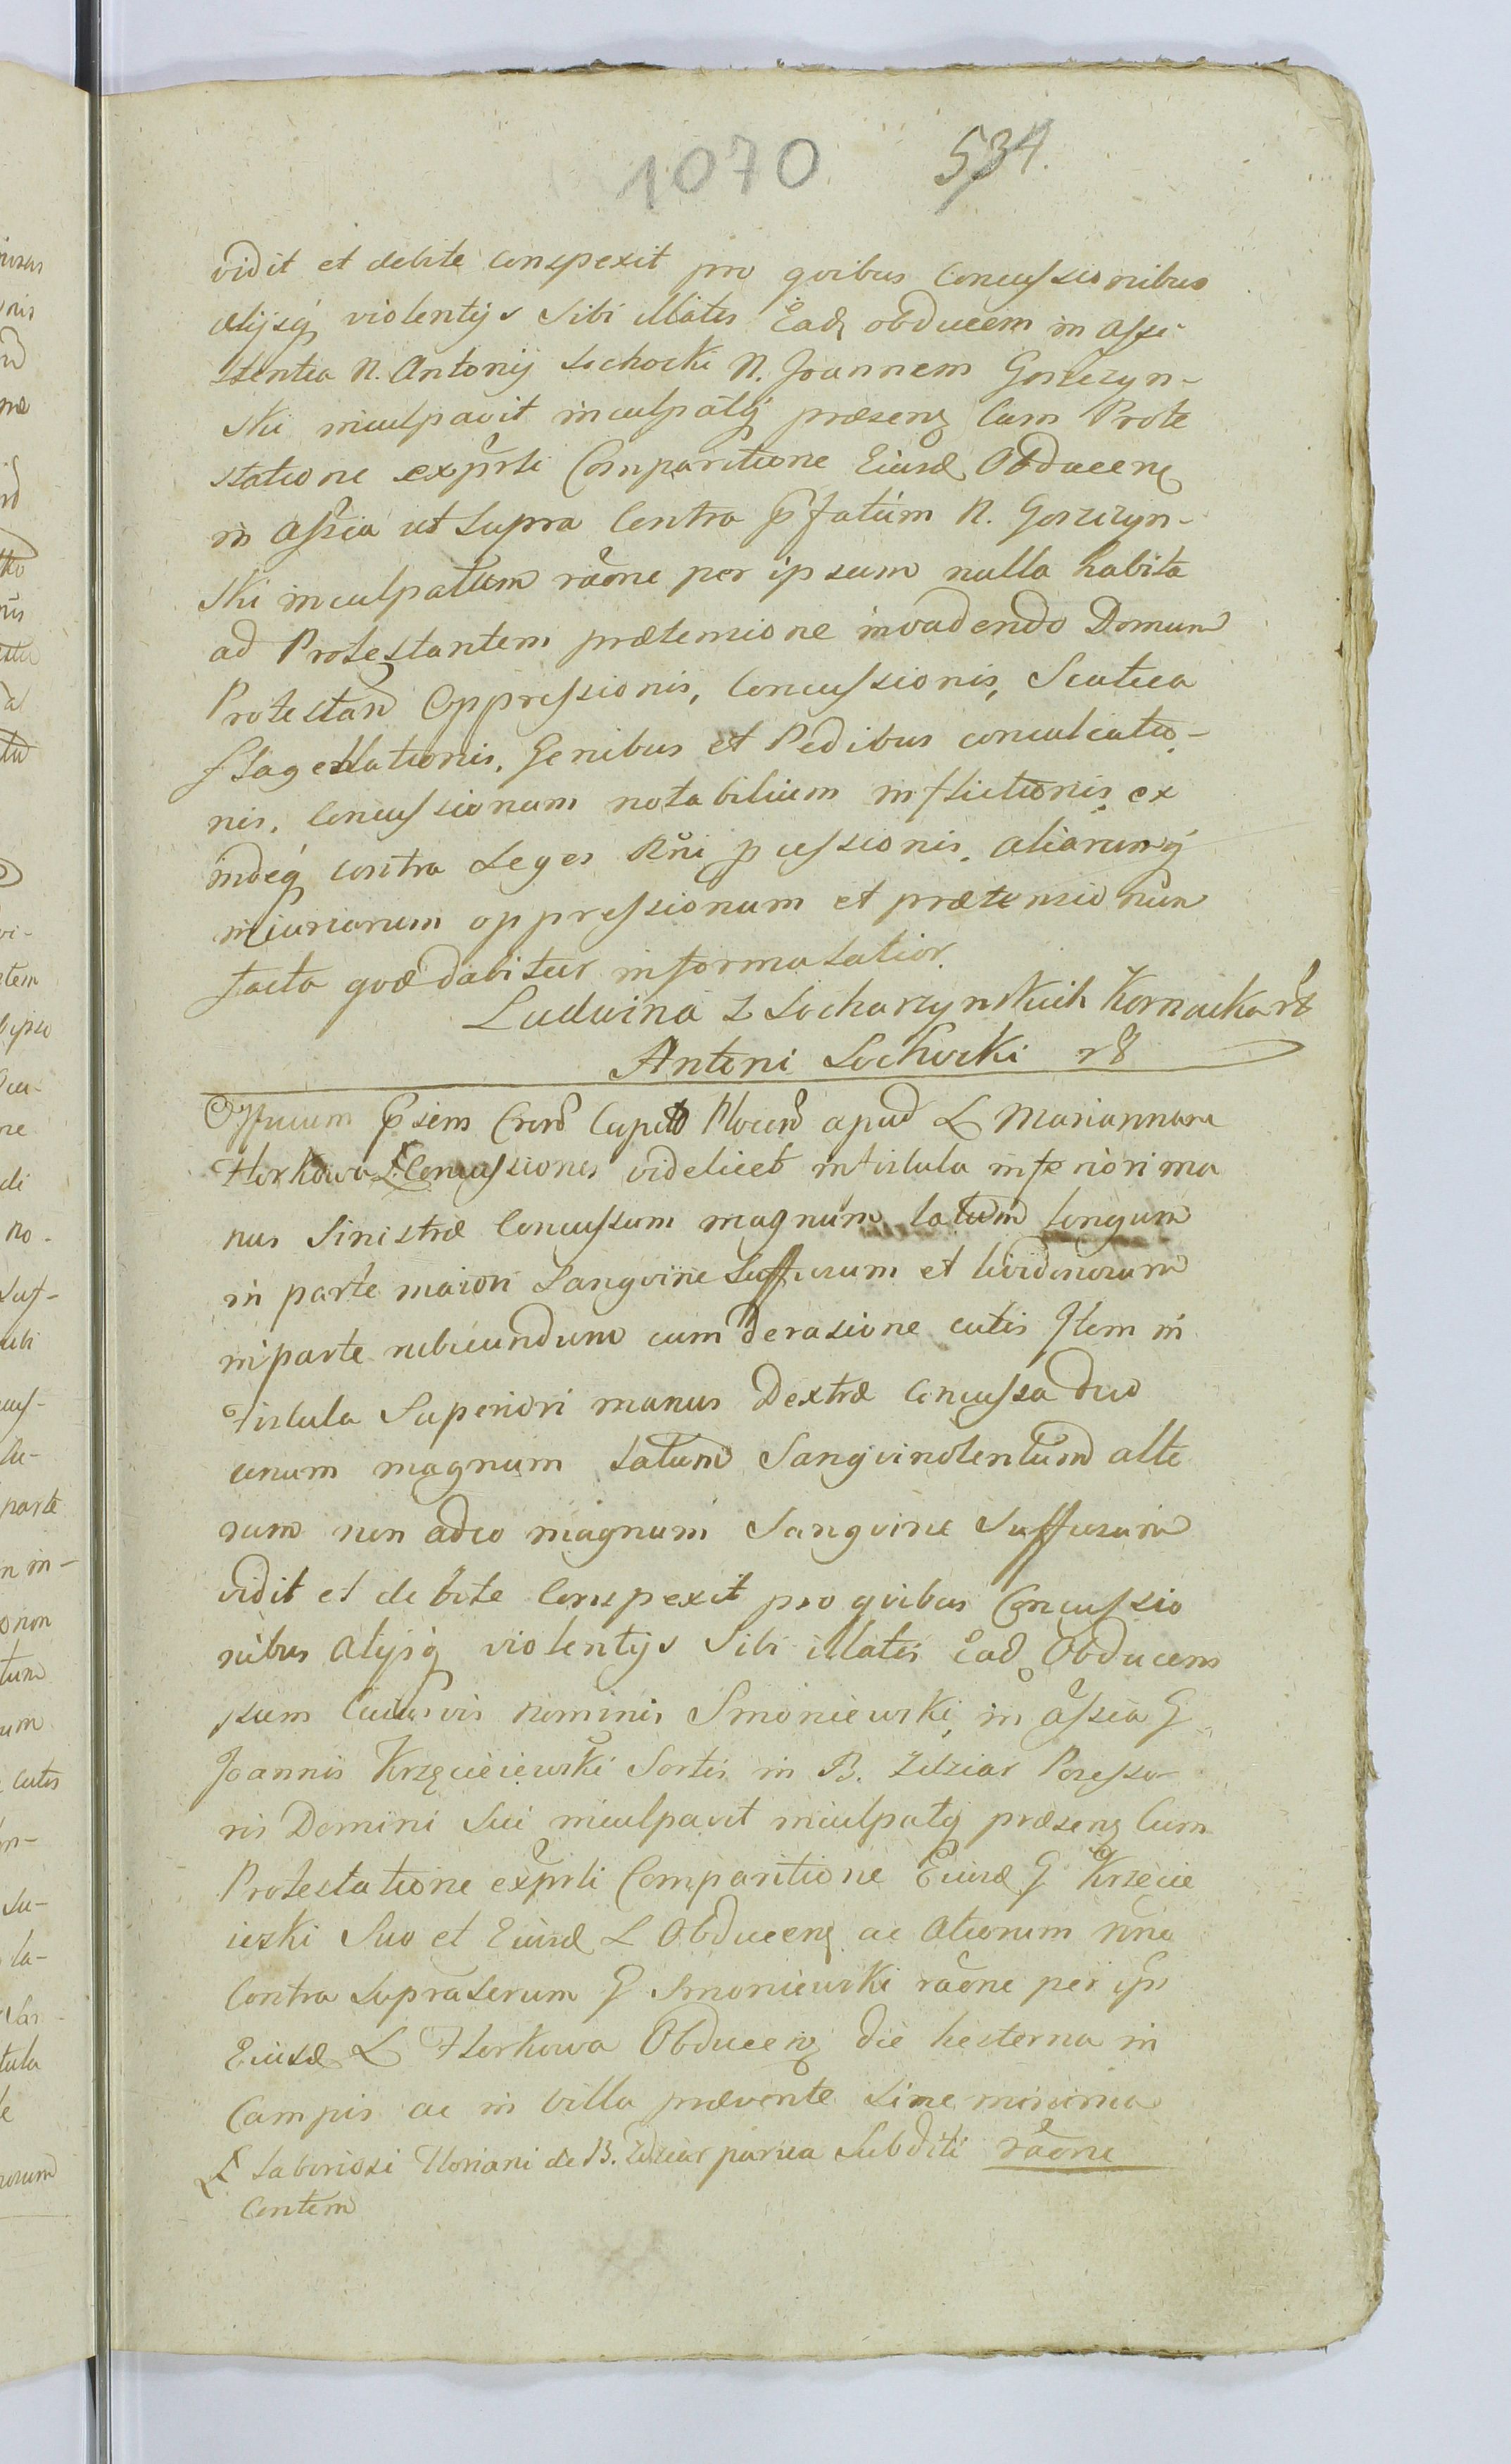 1070 534.
vidit et debite conspexit pro qvibus Concussionibus
alijsq violentijs Sibi illatis Ead obducem in assi
stentia N. Antonij Lochocki N. Joannem Gorzczyn-
ski inculpavit inculpatq præsenq Cum Prote
statione exprti Comparitione Eiusd Obducenq
in assia ut Supra Contra pfatum N. Gorzczyn-
ski inculpatum raone per ipsum nulla habita
ad Protestantem prætensione invadendo Domum
Protestan Oppressionis, Concussionis, Scutica
flagellationis, Genibus et Pedibus conculcatio-
nis, Concussionum notabilium inflictionis, ex
indeq contra Leges Rni pcussionis, aliarumq
iniuriarum oppressionum et prætensionum
facta qvæ dabitur informatatior.
Ludwina z Locharzynskich Kornacka rs
Antoni Lochocki rs
Officium psem Cren Capit Plocen apud L Mariannam
Florkowa L Concussiones videlicet in fistula inferiori ma
nus Sinistræ Concussum magnum latum longum
in parte maiori Sangvine Suffusum et lividinosum
in parte rubicundum cum derasione cutis Item in
Fistula Superiori manus Dextræ Concussa duo
unum magnum latum Sangvinolentum alte
rum non adeo magnum Sangvine Suffusum
vidit et debite Conspexit pro qvibus Concussio
nibus alijsq violentijs Sibi illatis Ead Obducens
sum Cuiusvis nominis Smoniewski, in assia G
Joannis Krzęcieiewski Sortis in B. Zdziar Possesso-
ris Domini Sui inculpavit inculpatq præsenq Cum
Protestatione exprti Comparitione Eiusd G Krzecie
iewski Suo et Eiusd L Obducenq ac aliorum nne
Contra Supralerum G Smoniewski raone per ips
Eiusd L Florkowa Obducenq die hesterna in
Campis ac in villa prævente Sine minima
L Laboriosi Floriani de B. Zdziar parua Subditi raone
Contem